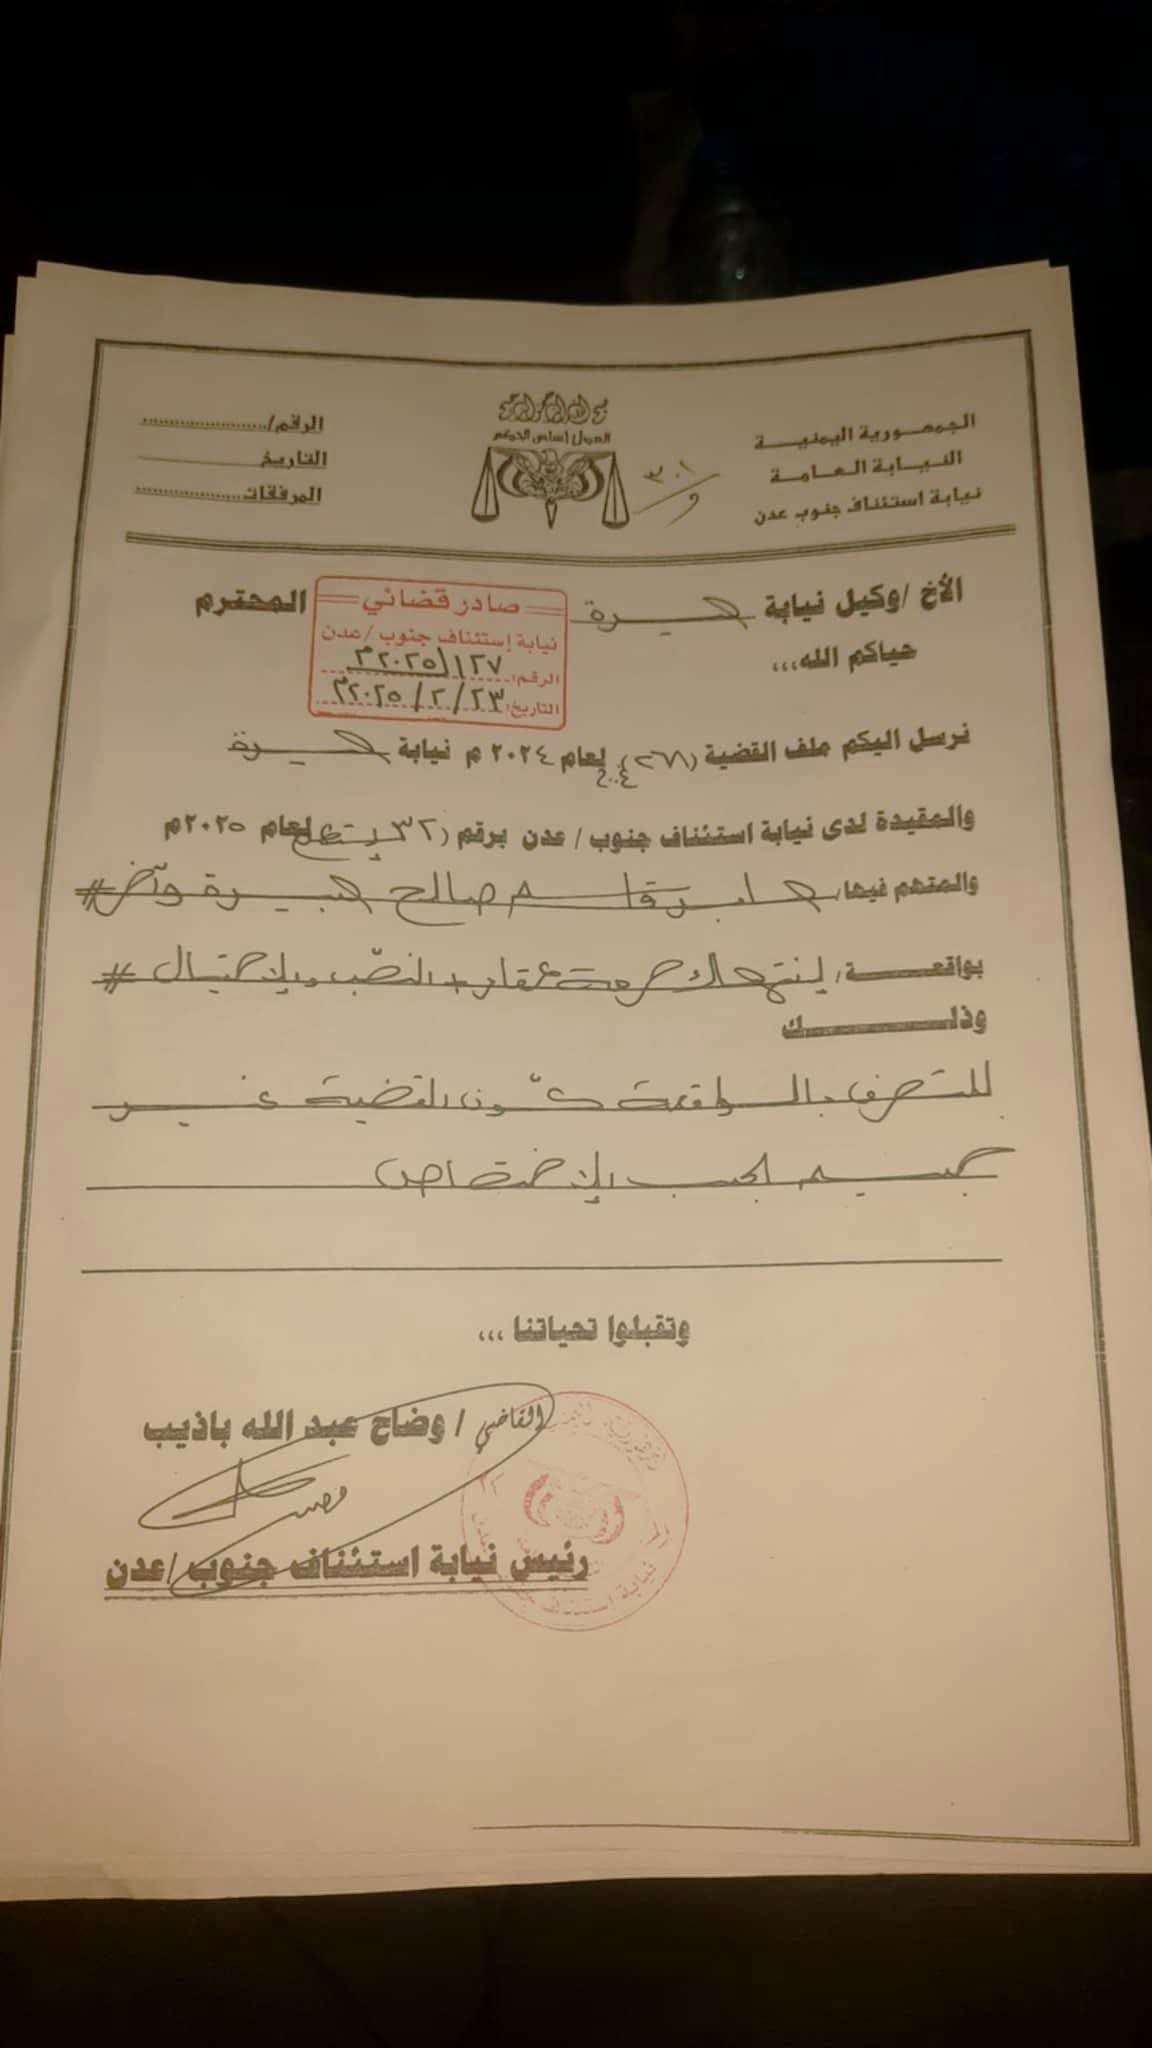 الجمهورية اليمنية
النيابة العامة
نيابة استئناف جنوب عدن
العدل أساس الحكم
الرقم/
التاريخ
المرفقات
الأخ /وكيل نيابة صيرة المحترم
صادر قضائي
نيابة إستئناف جنوب /عدن
الرقم: ١٢٧/٢٠٢٥م
التاريخ: ٢٣/٢/٢٠٢٥م
حياكم الله،،،
نرسل اليكم ملف القضية (٢٦٨) لعام ٢٠٢٤ م نيابة صيرة
والمقيدة لدى نيابة استئناف جنوب/ عدن برقم (٣٢) لعام ٢٠٢٥م
والمتهم فيها/ قاسم صالح وآخر #
بواقعة/ إنتهاك حرمة عقار + النصب والإحتيال #
وذلك
للتصرف بالواقعة كون القضية غير
جسيم الاختصاص
وتقبلوا تحياتنا ،،،
القاضي / وضاح عبد الله باذيب
رئيس نيابة استئناف جنوب /عدن